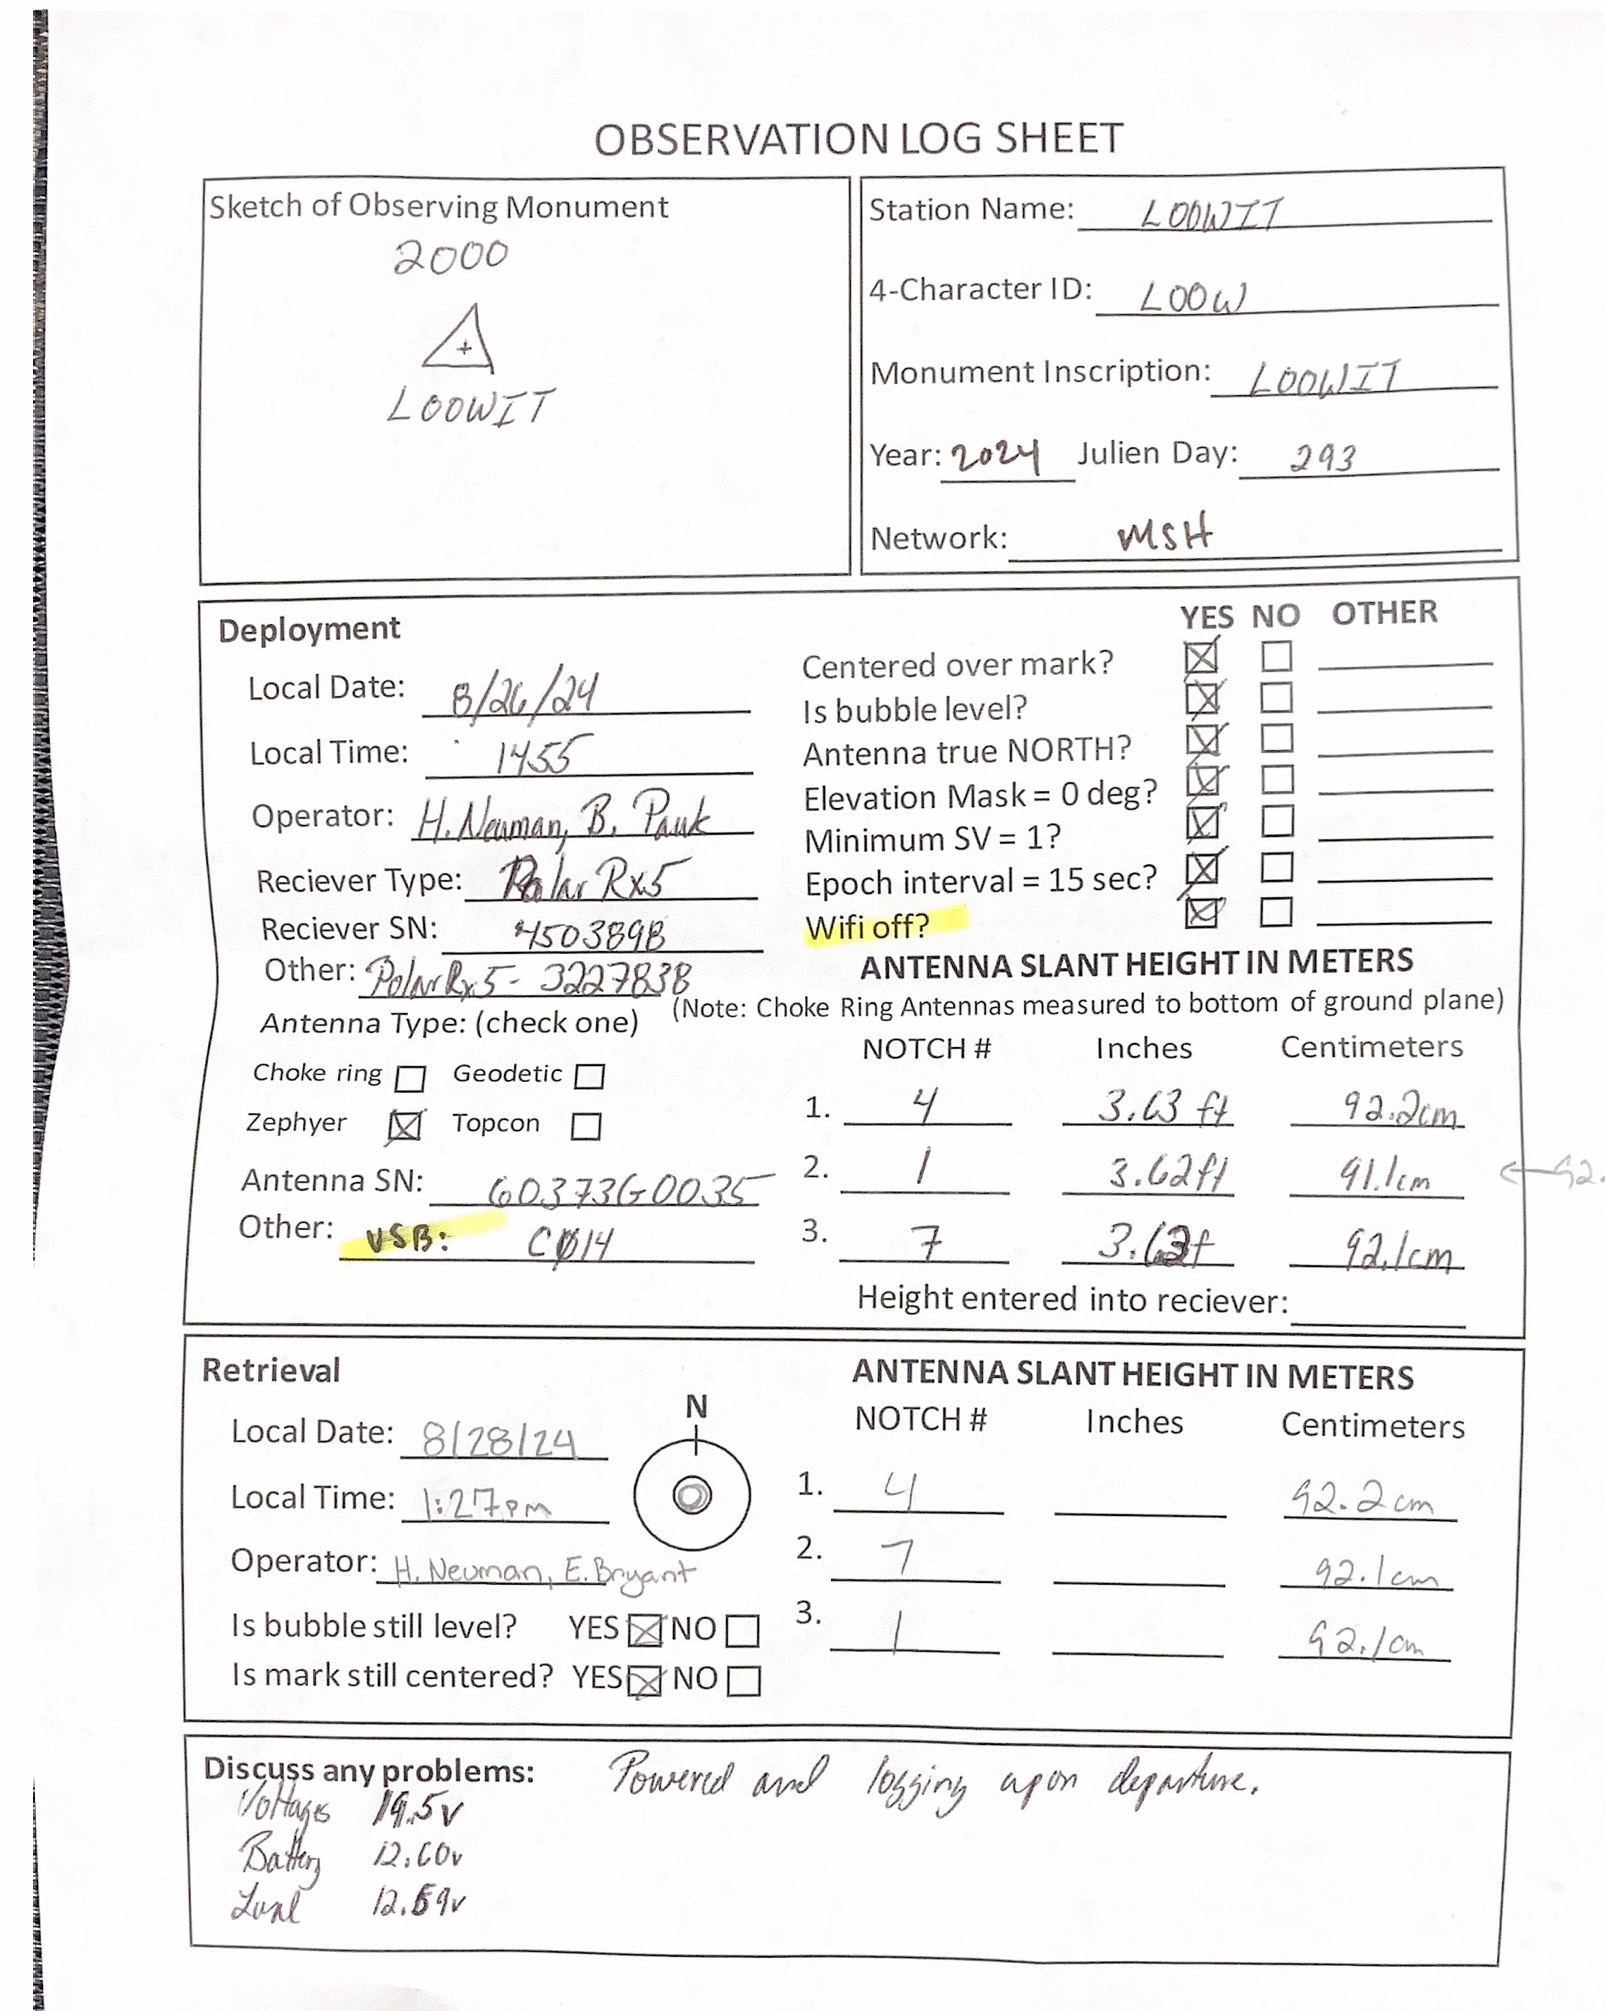 OBSERVATION LOG SHEET
Sketch of Observing Monument
2000
LOOWIT
Station Name: LOOWIT
4-Character ID: LOOW
Monument Inscription: LOOWIT
Year: 2024 Julien Day: 293
Network: MSH
Deployment
Local Date: 8/26/24
Local Time: 1455
Operator: H. Neuman, B. Pauk
Reciever Type: PolarRx5
Reciever SN: 4503898
Other: PolarRx5 - 3227838
Antenna Type: (check one)
Choke ring Geodetic
Zephyer Topcon
Antenna SN: 60373G0035
Other: USB: CØ14
YES NO OTHER
Centered over mark?
Is bubble level?
Antenna true NORTH?
Elevation Mask = 0 deg?
Minimum SV = 1?
Epoch interval = 15 sec?
Wifi off?
ANTENNA SLANT HEIGHT IN METERS
(Note: Choke Ring Antennas measured to bottom of ground plane)
NOTCH # Inches Centimeters
1. 4 3.63 ft 92.2cm
2. 1 3.62ft 91.1cm ← 92.
3. 7 3.63f 92.1cm
Height entered into reciever:
Retrieval
Local Date: 8/28/24
Local Time: 1:27pm
Operator: H. Neuman, E. Bryant
Is bubble still level? YES NO
Is mark still centered? YES NO
N
ANTENNA SLANT HEIGHT IN METERS
NOTCH # Inches Centimeters
1. 4 92.2cm
2. 7 92.1cm
3. 1 92.1cm
Discuss any problems: Powered and logging upon departure.
Voltages 19.5v
Battery 12.60v
12.59v